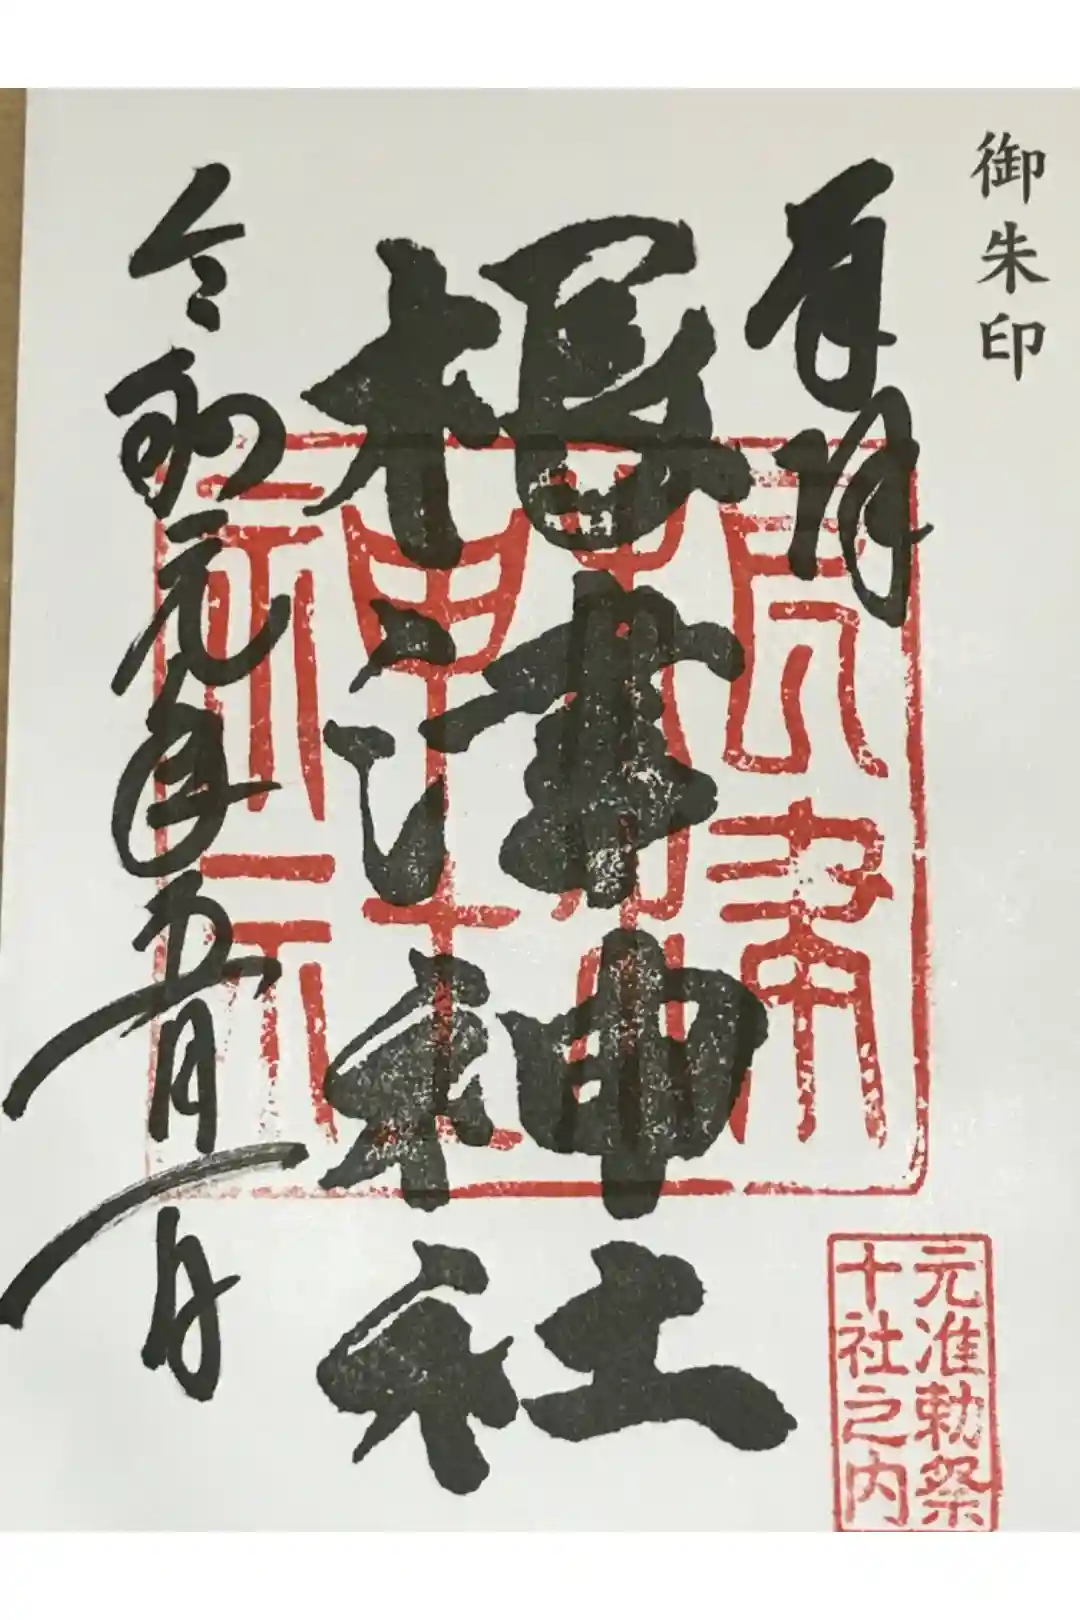 御朱印
奉拝
根津神社
令和元年五月一日
元准勅祭
十社之内
根津
神社